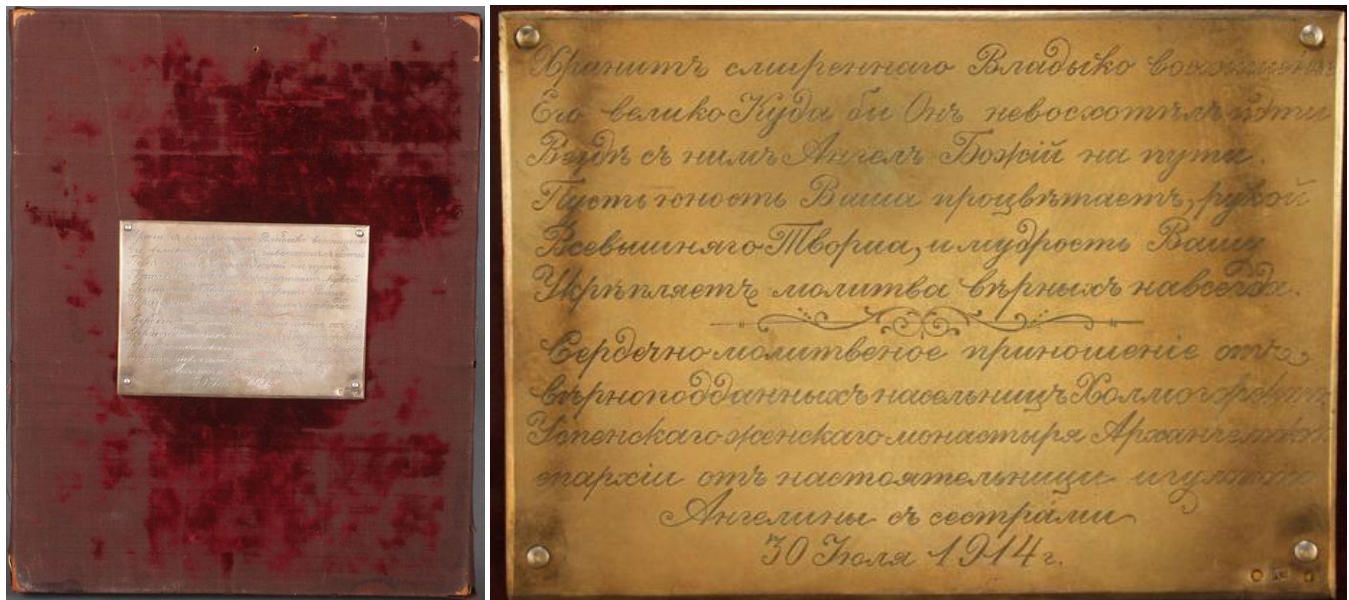 Хранитъ смиреннаго Владыко
Его велико Куда бы Онъ невосхотѣлъ идти
Вездѣ съ нимъ Ангелъ Божій на пути.
Пусть юность Ваша процвѣтаетъ, рукой
Всевышняго Творца, и мудрость Вашу
Укрѣпляетъ молитва вѣрныхъ навсегда.
Сердечно молитвеное приношеніе отъ
вѣрноподданныхъ насельницъ Холмогорскаго
Успенскаго женскаго монастыря Архангельской
епархіи отъ настоятельници игуменіи
Ангелины съ сестрами
30 Іюля 1914 г.